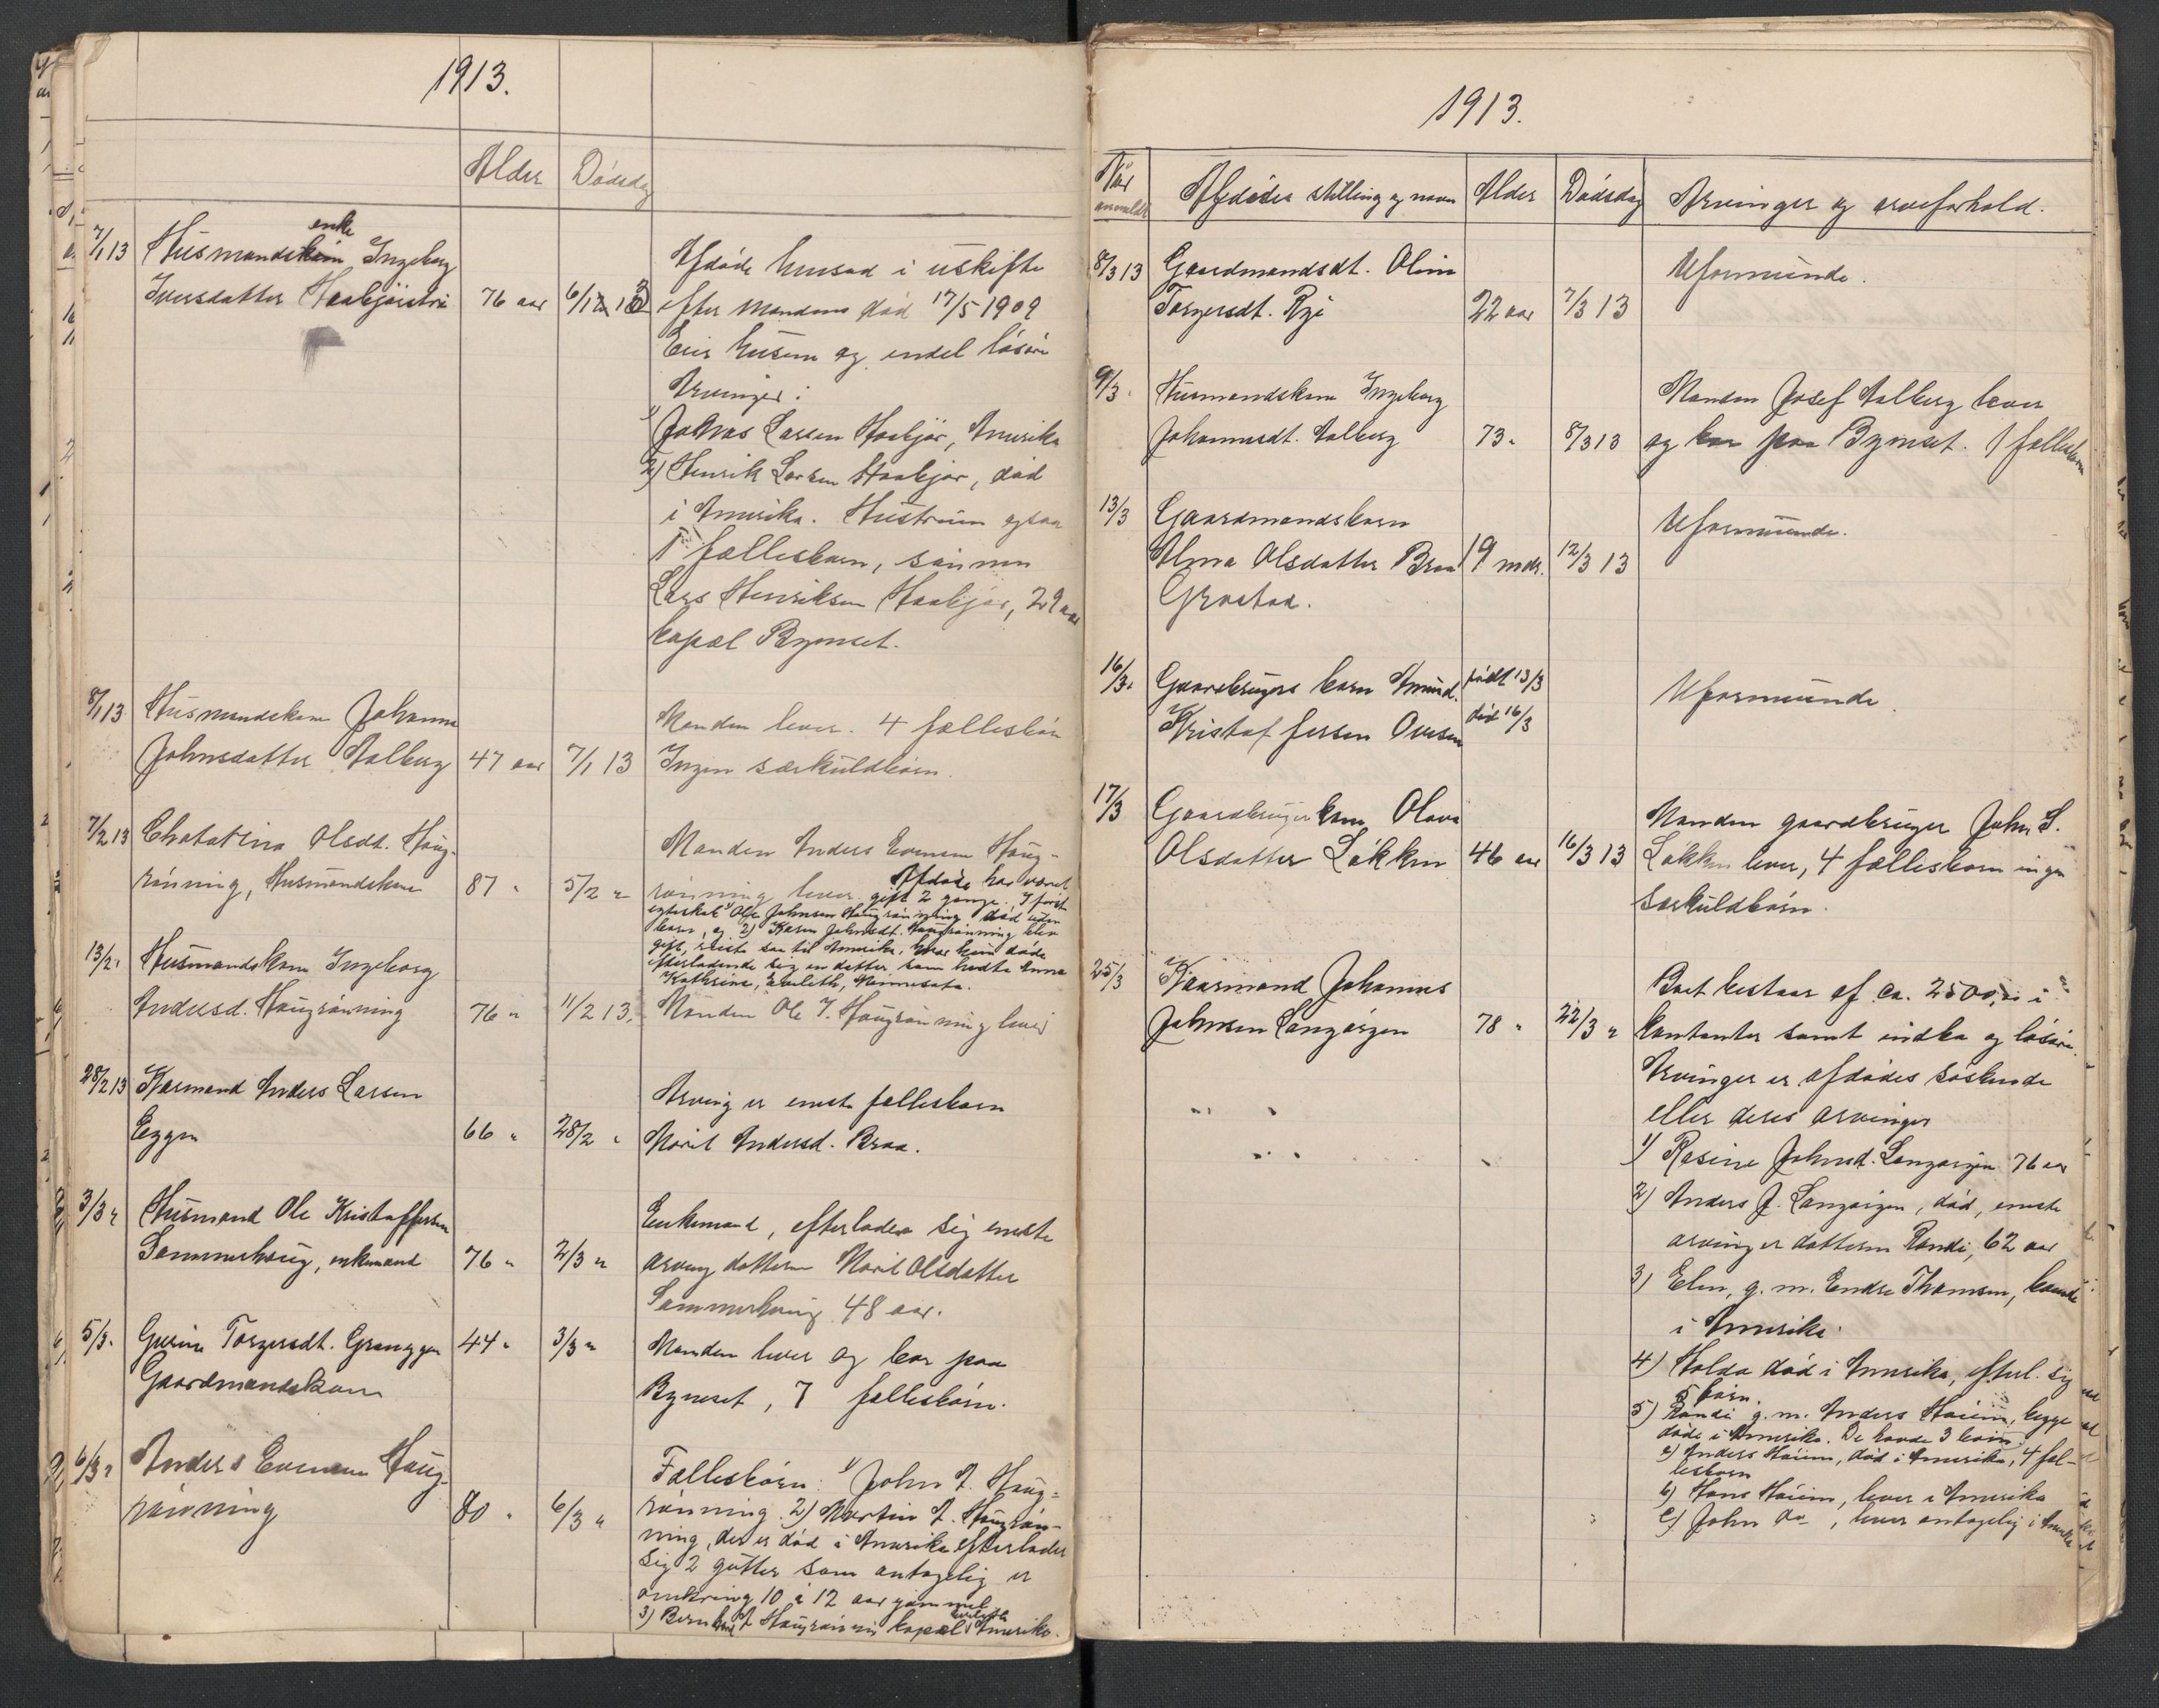 1913.
Alder Dødsdag
7/1 13 Husmandskone enke Ingeborg
Iversdatter Haabjørstrø 76 aar 6/1 13
Afdøde hensad i uskifte
efter mandens død 17/5 1909
Eier husene og endel løsøre
Arvinger:
1) Johas Larsen Haabjør, Amerika
2) Henrik Larsen Haabjør, død
i Amerika. Hustruen ogsaa
1 fællesbarn, sønnen
Lars Henriksen Haabjør, 29 aar
kapel Bynesset.
8/1 13 Husmandskone Johanna
Johnsdatter Aalberg 47 aar 7/1 13
Manden lever. 4 fællesbørn
Ingen særkuldbørn.
7/2 13 Chatarina Olsdt. Haug-
rønning, Husmandskone 87 " 5/2 "
Manden Anders Evensen Haug-
rønning lever. Afdøde har været
gift 2 gange. I første
egteskab 1) Ole Johnsen Haugrønning død uden
barn, og 2) Karen Johnsdt. Haugrønning blev
gift, reiste saa til Amerika, hvor hun døde
efterladende sig en datter som hedte Anna
Kathrine, Eveleth, Minnesota.
13/2 " Husmandskone Ingeborg
Andersd. Haugrønning 76 " 11/2 13.
Manden Ole J. Haugrønning lever
28/2 13 Kaarmand Anders Larsen
Eggen 66 " 28/2 "
Arving er eneste fællesbarn
Marit Andersd. Braa.
3/3 " Husmand Ole Kristoffersen
Sommerhaug, enkemand 76 " 2/3 "
Enkemand, efterlader sig eneste
arving datteren Marit Olsdatter
Sommerhaug 48 aar.
5/3 " Gurine Torgersdt. Granggen 44 " 3/3 "
Gaardmandskone
Manden lever og bor paa
Byneset, 7 fællesbørn.
6/3 " Anders Evensen Haug-
rønning 80 " 6/3 "
Fællesbørn: 1) John A. Haug-
rønning. 2) Martin A. Haugrøn-
ning, der er død i Amerika efterlader
sig 2 gutter som antagelig er
omkring 10 à 12 aar gammel
3) Bernhard A. Haugrønning kapel Eveleth Amerika.
1913.
Når anmeldt Afdødes stilling og navn Alder Dødsdag Arvinger og arveforhold.
8/3 13 Gaardmandsdt. Oline
Torgersdt. Rye 22 aar 7/3 13
Uformuende.
9/3 " Husmandskone Ingeborg
Johannesdt. Aalberg 73 " 8/3 13
Manden Josef Aalberg lever
og bor paa Bynset. 1 fællesbarn
13/3 Gaardmandsbarn
Alma Olsdatter Braa 19 mdr. 12/3 13
Graataa.
Uformuende.
16/3 " Gaardbrugers barn Amund født 13/3
Kristoffersen Oversen død 16/3
Uformuende.
17/3 Gaardbrugerkone Olava
Olsdatter Løkken 46 aar 16/3 13
Manden gaardbruger John S.
Løkken lever, 4 fællesbarn ingen
særkuldbørn.
25/3 Kaarmand Johannes
Johnsen Langørgen 78 " 22/3 "
Boet bestaar af ca. 2500,00 i
kontanter samt indbo og løsøre.
Arvinger er afdødes søskende
eller deres arvinger
1) Rasine Johnsd. Langørgen 76 aar
2) Anders J. Langørgen, død, eneste
arving er datteren Randi, 62 aar
3) Elen, g. m. Endre Thomsen, boende
i Amerika.
4) Halda død i Amerika, efterl. sig
5 børn.
5) Randi g. m. Anders Høiem, begge
døde i Amerika. De havde 3 børn
a) Anders Høiem, død i Amerika, 4 fæl-
lesbarn
b) Hans Høiem, lever i Amerika
c) John do, lever antagelig i Amerika